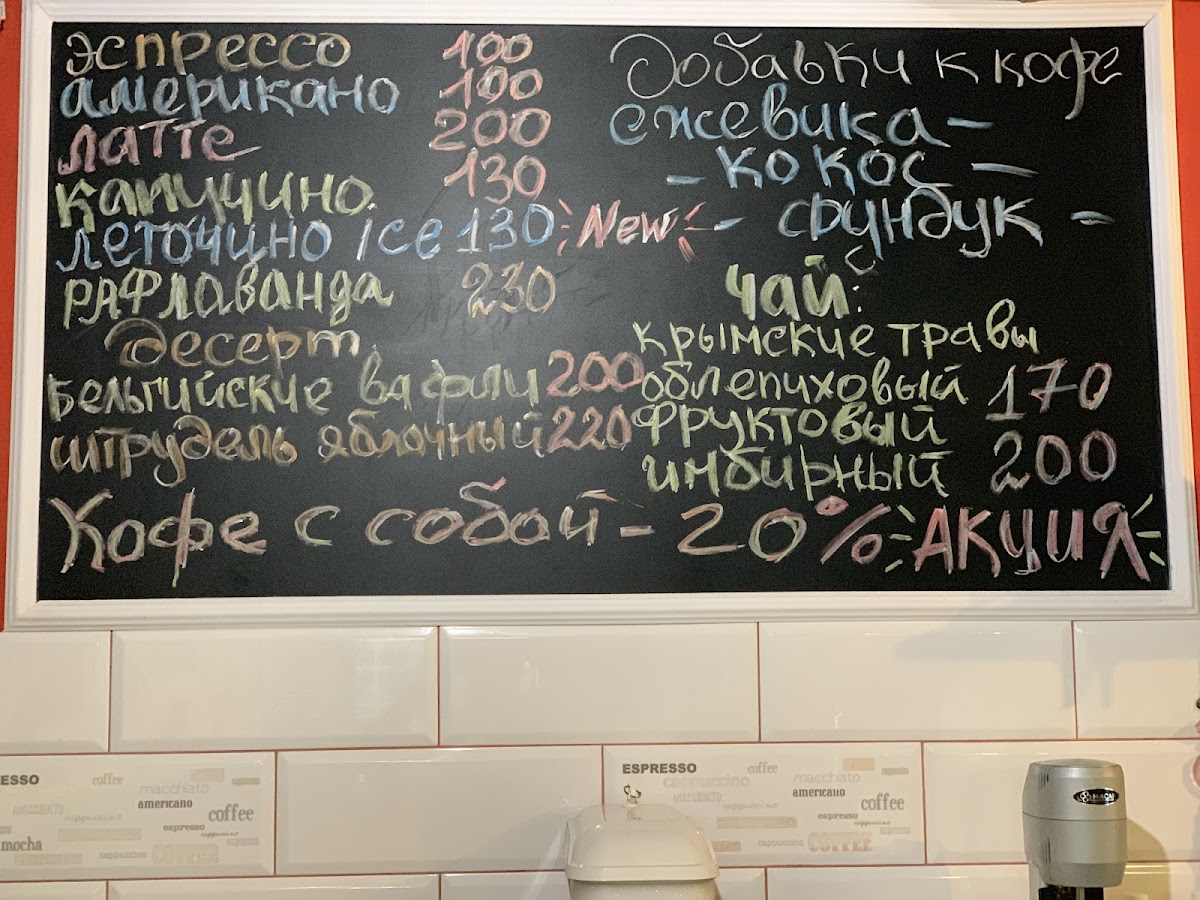 эспрессо 100
американо 100
латте 200
капучино 130
леточино ice 130 New
раф лаванда 230
десерт
бельгийские вафли 200
штрудель яблочный 220
Добавки к кофе
ежевика -
- кокос -
- фундук -
чай:
крымские травы
облепиховый 170
фруктовый
имбирный 200
Кофе с собой - 20% АКЦИЯ
ESSO
coffee
macchiato
americano
coffee
espresso
mocha
cappuccino
COFFEE
ESPRESSO
coffee
cappuccino
macchiato
MACCHIATO
americano
cappuccino
coffee
espresso
cappuccino
COFFEE